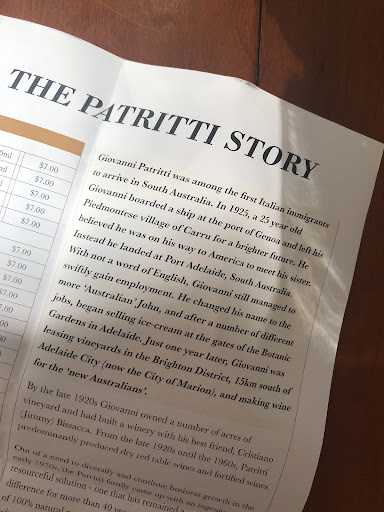 THE PATRITTI STORY
0ml $7.00
ml $7.00
$7.00
$7.00
$7.00
$7.00
$7.00
$7.00
$7.00
$7.00
$7.00
$7.00
Giovanni Patritti was among the first Italian immigrants
to arrive in South Australia. In 1925, a 25 year old
Giovanni boarded a ship at the port of Genoa and left his
Piedmontese village of Carru for a brighter future. He
believed he was on his way to America to meet his sister.
Instead he landed at Port Adelaide, South Australia.
With not a word of English, Giovanni still managed to
swiftly gain employment. He changed his name to the
more 'Australian' John, and after a number of different
jobs, began selling ice-cream at the gates of the Botanic
Gardens in Adelaide. Just one year later, Giovanni was
leasing vineyards in the Brighton District, 15km south of
Adelaide City (now the City of Marion), and making wine
for the 'new Australians'.
By the late 1920s Giovanni owned a number of acres of
vineyard and had built a winery with his best friend, Cristiano
(Jimmy) Bissacca. From the late 1920s until the 1960s, Patritti
predominantly produced dry red table wines and fortified wines.
Out of a need to diversify and continue business growth in the
early 1970s, the Patritti family came up with an
resourceful solution - one that has remained
difference for more than 40
of 100% natural